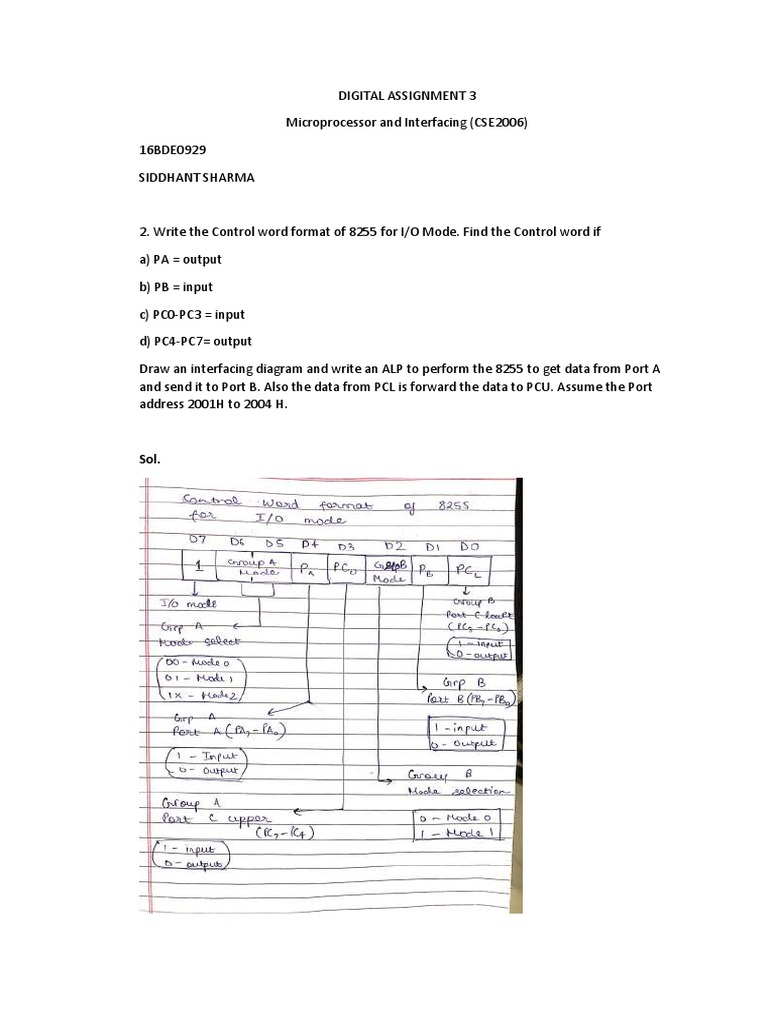 DIGITAL ASSIGNMENT 3
Microprocessor and Interfacing (CSE2006)
16BDE0929
SIDDHANT SHARMA
2. Write the Control word format of 8255 for I/O Mode. Find the Control word if
a) PA = output
b) PB = input
c) PC0-PC3 = input
d) PC4-PC7= output
Draw an interfacing diagram and write an ALP to perform the 8255 to get data from Port A
and send it to Port B. Also the data from PCL is forward the data to PCU. Assume the Port
address 2001H to 2004 H.
Sol.
Control Word format of 8255
for I/O mode
D7 D6 D5 D4 D3 D2 D1 D0
1 Group A Mode PA PCU Group B Mode PB PCL
I/O mode
Grp A
Mode select
00 - Mode 0
01 - Mode 1
1X - Mode 2
Grp A
Port A (PA7 - PA0)
1 - Input
0 - Output
Group A
Port C upper
(PC7 - PC4)
1 - input
0 - output
Group B
Port C
1 - input
0 - output
Grp B
Port B (PB7 - PB0)
1 - input
0 - Output
Group B
Mode selection
0 - Mode 0
1 - Mode 1